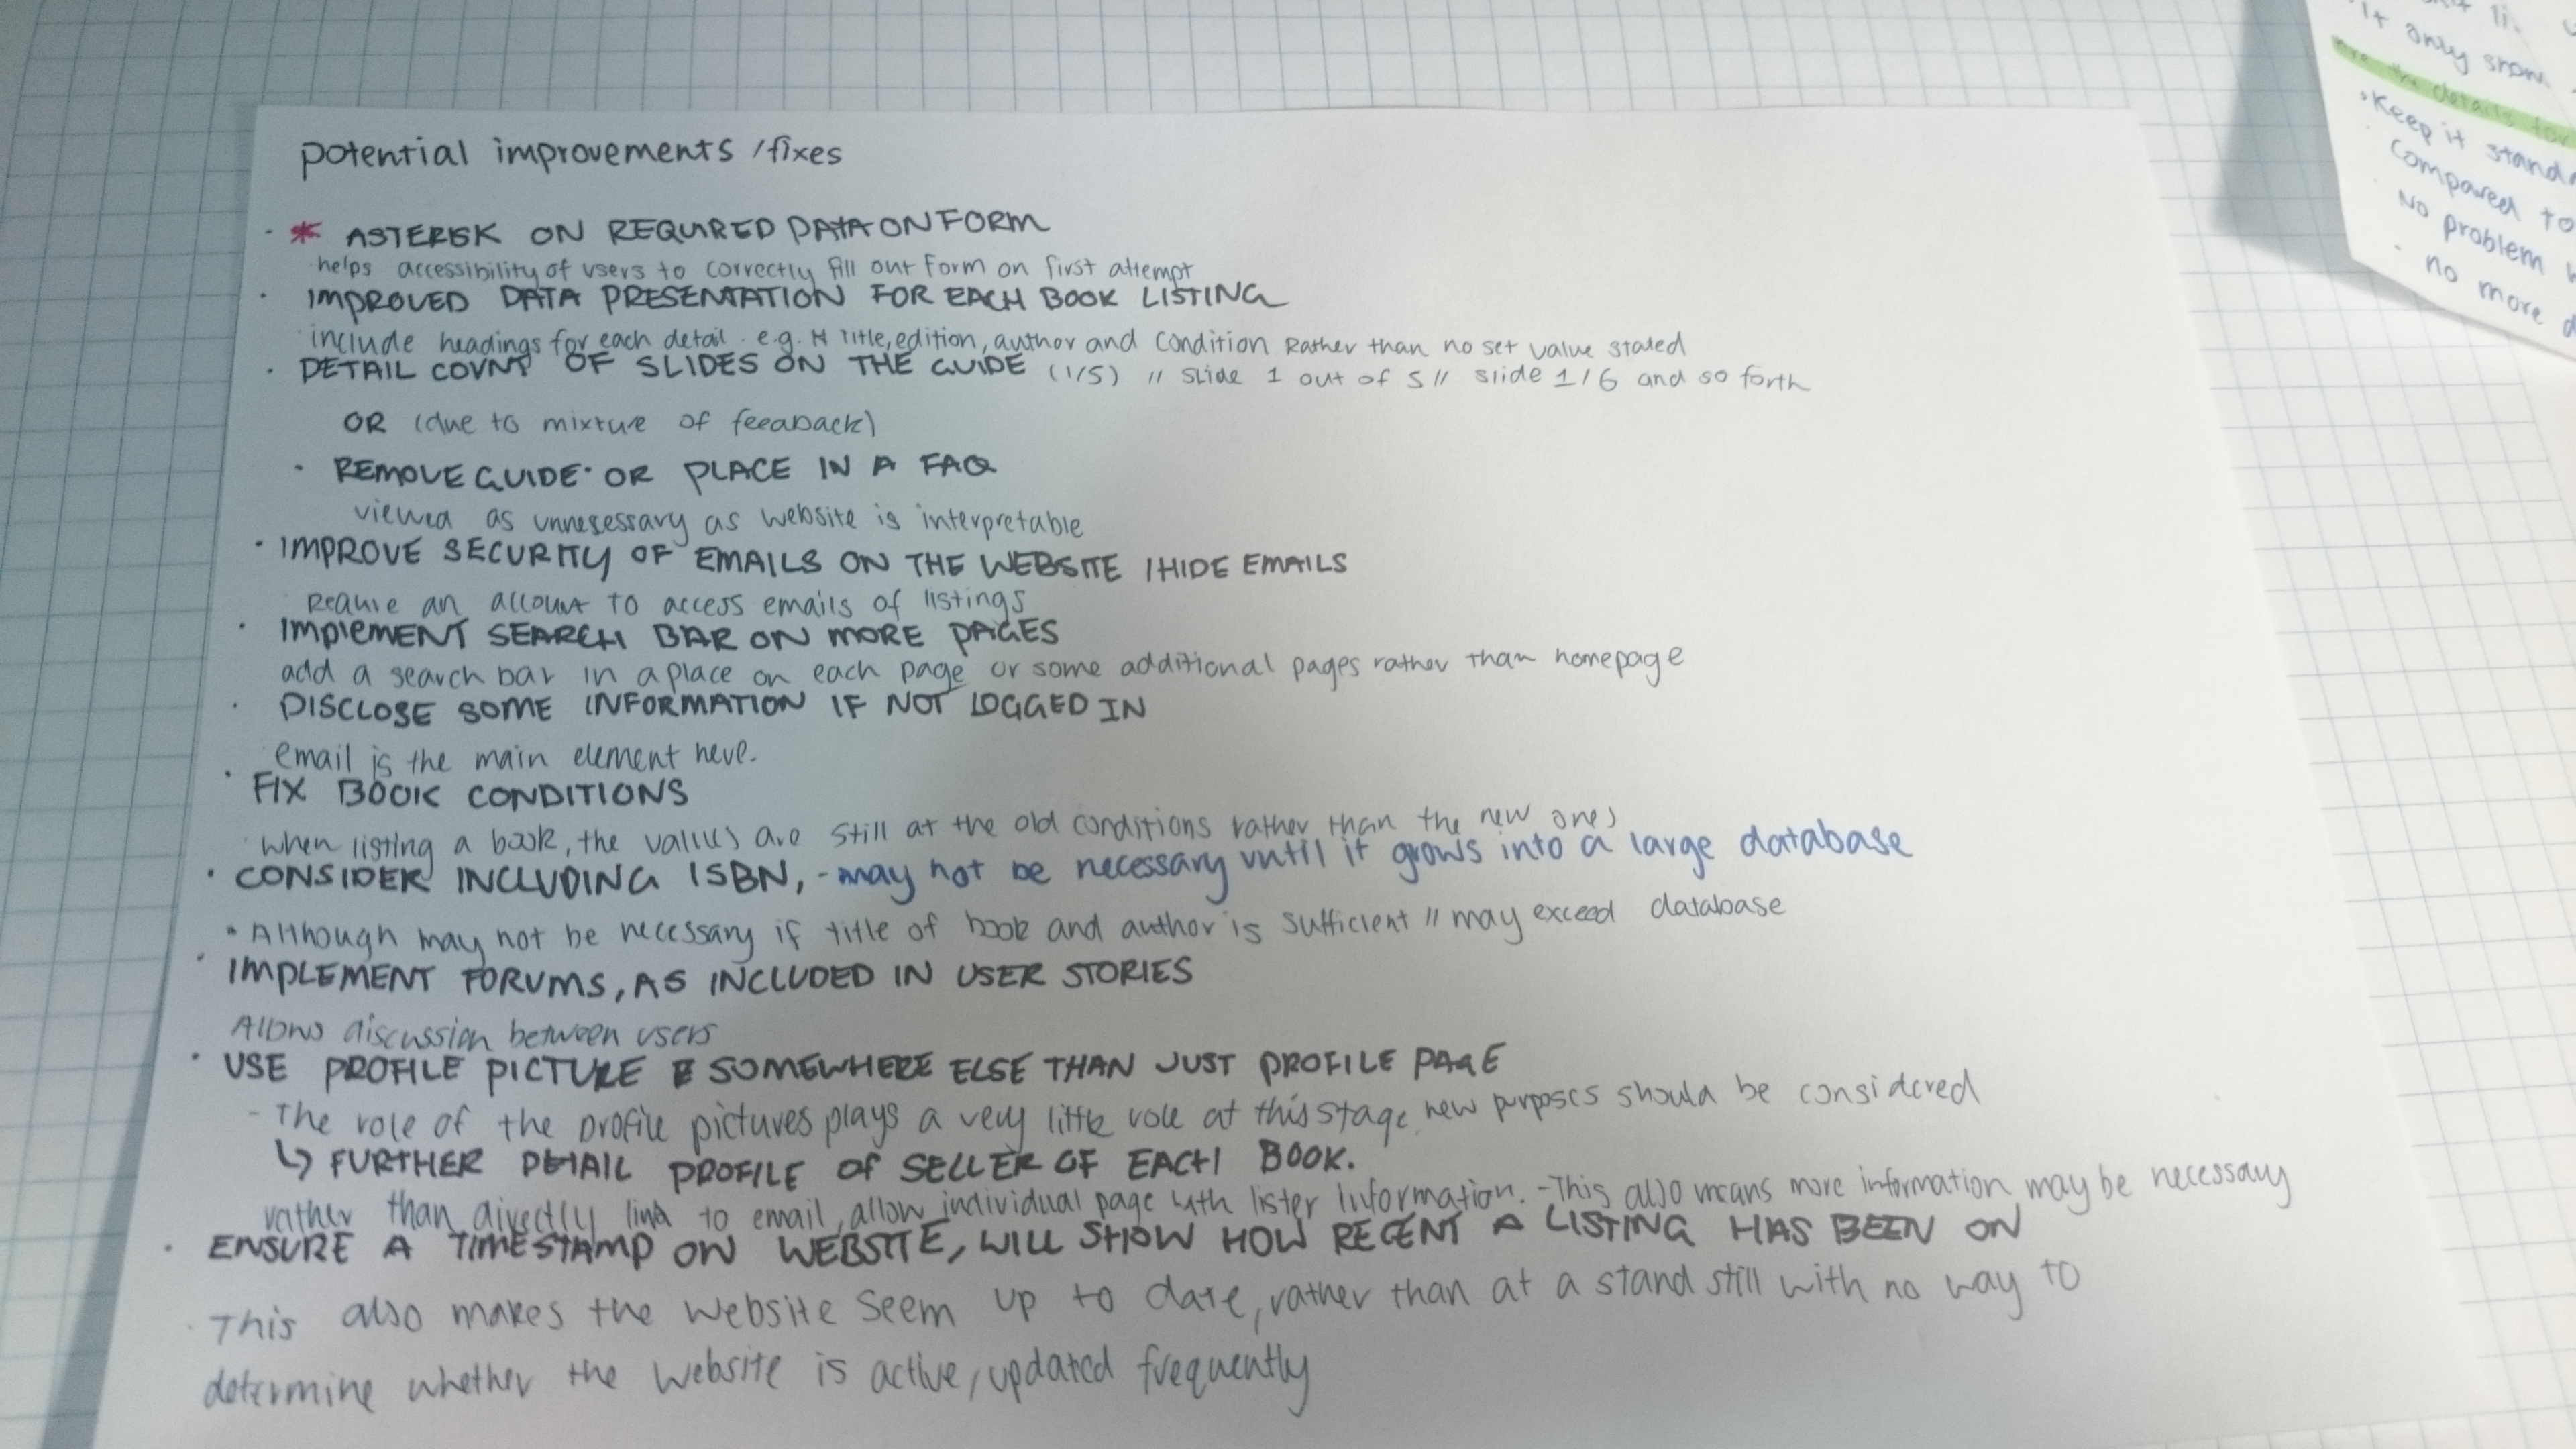 potential improvements /fixes
· * ASTERISK ON REQUIRED DATA ON FORM
· helps accessibility of users to correctly fill out form on first attempt
· IMPROVED DATA PRESENTATION FOR EACH BOOK LISTING
· include headings for each detail. e.g. Title, edition, author and condition Rather than no set value stated
· DETAIL COUNT OF SLIDES ON THE GUIDE (1/5) // slide 1 out of 5 // slide 1/6 and so forth
OR (due to mixture of feedback)
· REMOVE GUIDE· OR PLACE IN A FAQ
viewed as unnesessary as website is interpretable
· IMPROVE SECURITY OF EMAILS ON THE WEBSITE / HIDE EMAILS
Requie an account to access emails of listings
· ImplEMENT SEARCH BAR ON MORE PAGES
add a search bar in a place on each page or some additional pages rather than homepage
· DISCLOSE SOME INFORMATION IF NOT LOGGED IN
email is the main element here.
· FIX BOOK CONDITIONS
· when listing a book, the values are still at the old conditions rather than the new ones
· CONSIDER INCLUDING ISBN, - may not be necessary until it grows into a large database
· Although may not be necessary if title of book and author is sufficient // may exceed database
· IMPLEMENT FORUMS, AS INCLUDED IN USER STORIES
Allows discussion between users
· USE PROFILE PICTURE SOMEWHERE ELSE THAN JUST PROFILE PAGE
- The role of the profile pictures plays a very little role at this stage, new purposes should be considered
↳ FURTHER DETAIL PROFILE OF SELLER OF EACH BOOK.
rather than directly link to email, allow individual page with lister information. - This also means more information may be necessary
· ENSURE A TIMESTAMP ON WEBSITE, WILL SHOW HOW RECENT A LISTING HAS BEEN ON
· This also makes the website seem up to date, rather than at a stand still with no way to
determine whether the website is active, updated frequently
It only show
the details for
· Keep it stand
Compared to
No problem
· no more d